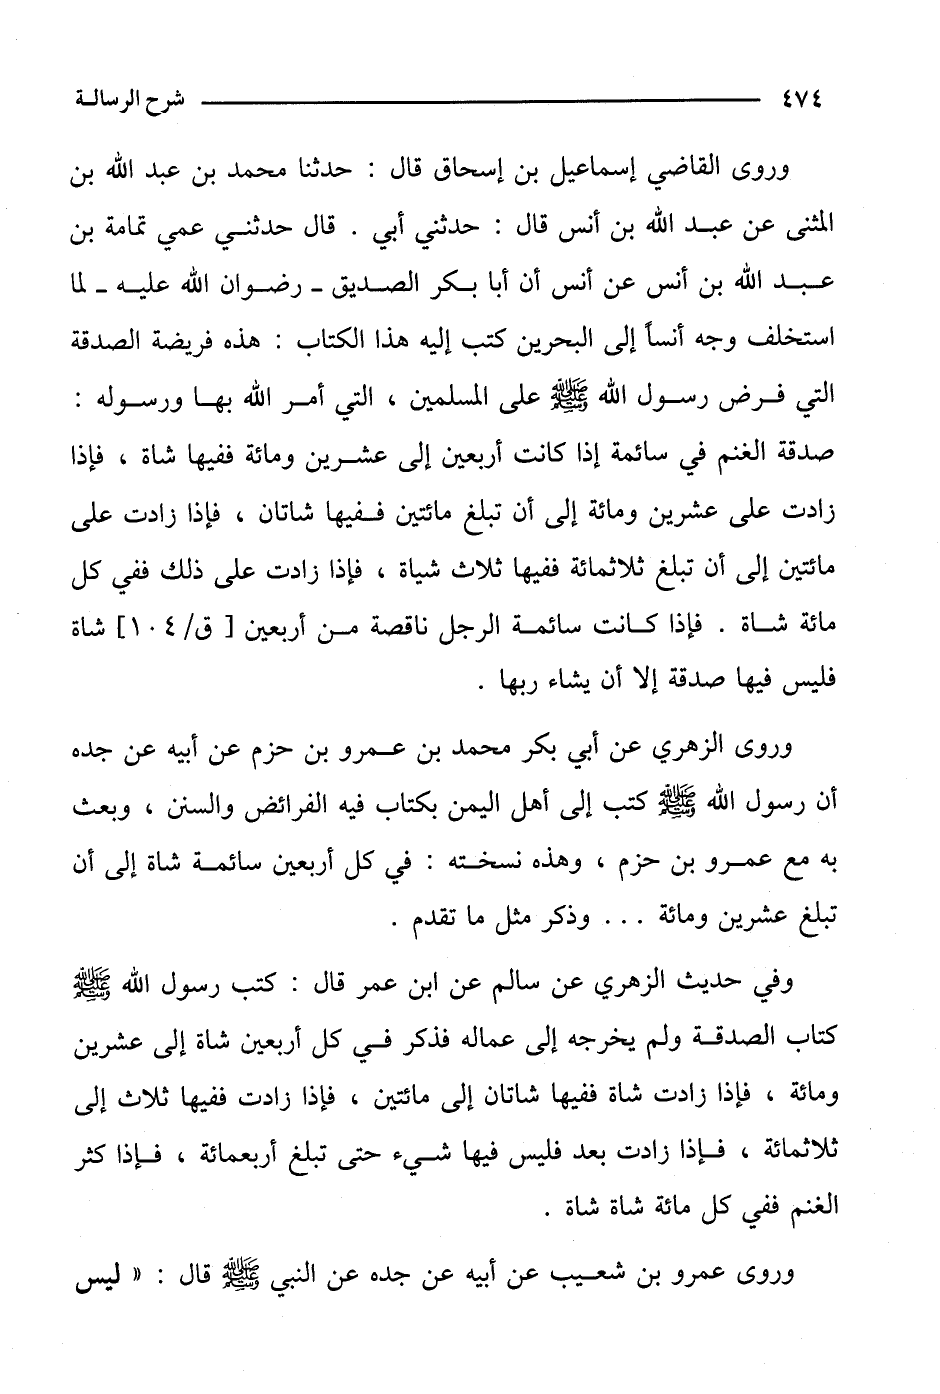 ٤٧٤ شرح الرسالة
وروى القاضي إسماعيل بن إسحاق قال : حدثنا محمد بن عبد الله بن
المثنى عن عبد الله بن أنس قال : حدثني أبي . قال حدثني عمي ثمامة بن
عبد الله بن أنس عن أنس أن أبا بكر الصديق ـ رضوان الله عليه ـ لما
استخلف وجه أنساً إلى البحرين كتب إليه هذا الكتاب : هذه فريضة الصدقة
التي فرض رسول الله ﷺ على المسلمين ، التي أمر الله بها ورسوله :
صدقة الغنم في سائمة إذا كانت أربعين إلى عشرين ومائة ففيها شاة ، فإذا
زادت على عشرين ومائة إلى أن تبلغ مائتين ففيها شاتان ، فإذا زادت على
مائتين إلى أن تبلغ ثلاثمائة ففيها ثلاث شياة ، فإذا زادت على ذلك ففي كل
مائة شاة . فإذا كانت سائمة الرجل ناقصة من أربعين [ ق/ ١٠٤] شاة
فليس فيها صدقة إلا أن يشاء ربها .
وروى الزهري عن أبي بكر محمد بن عمرو بن حزم عن أبيه عن جده
أن رسول الله ﷺ كتب إلى أهل اليمن بكتاب فيه الفرائض والسنن ، وبعث
به مع عمرو بن حزم ، وهذه نسخته : في كل أربعين سائمة شاة إلى أن
تبلغ عشرين ومائة ... وذكر مثل ما تقدم .
وفي حديث الزهري عن سالم عن ابن عمر قال : كتب رسول الله ﷺ
كتاب الصدقة ولم يخرجه إلى عماله فذكر في كل أربعين شاة إلى عشرين
ومائة ، فإذا زادت شاة ففيها شاتان إلى مائتين ، فإذا زادت ففيها ثلاث إلى
ثلاثمائة ، فإذا زادت بعد فليس فيها شيء حتى تبلغ أربعمائة ، فإذا كثر
الغنم ففي كل مائة شاة شاة .
وروى عمرو بن شعيب عن أبيه عن جده عن النبي ﷺ قال : « ليس